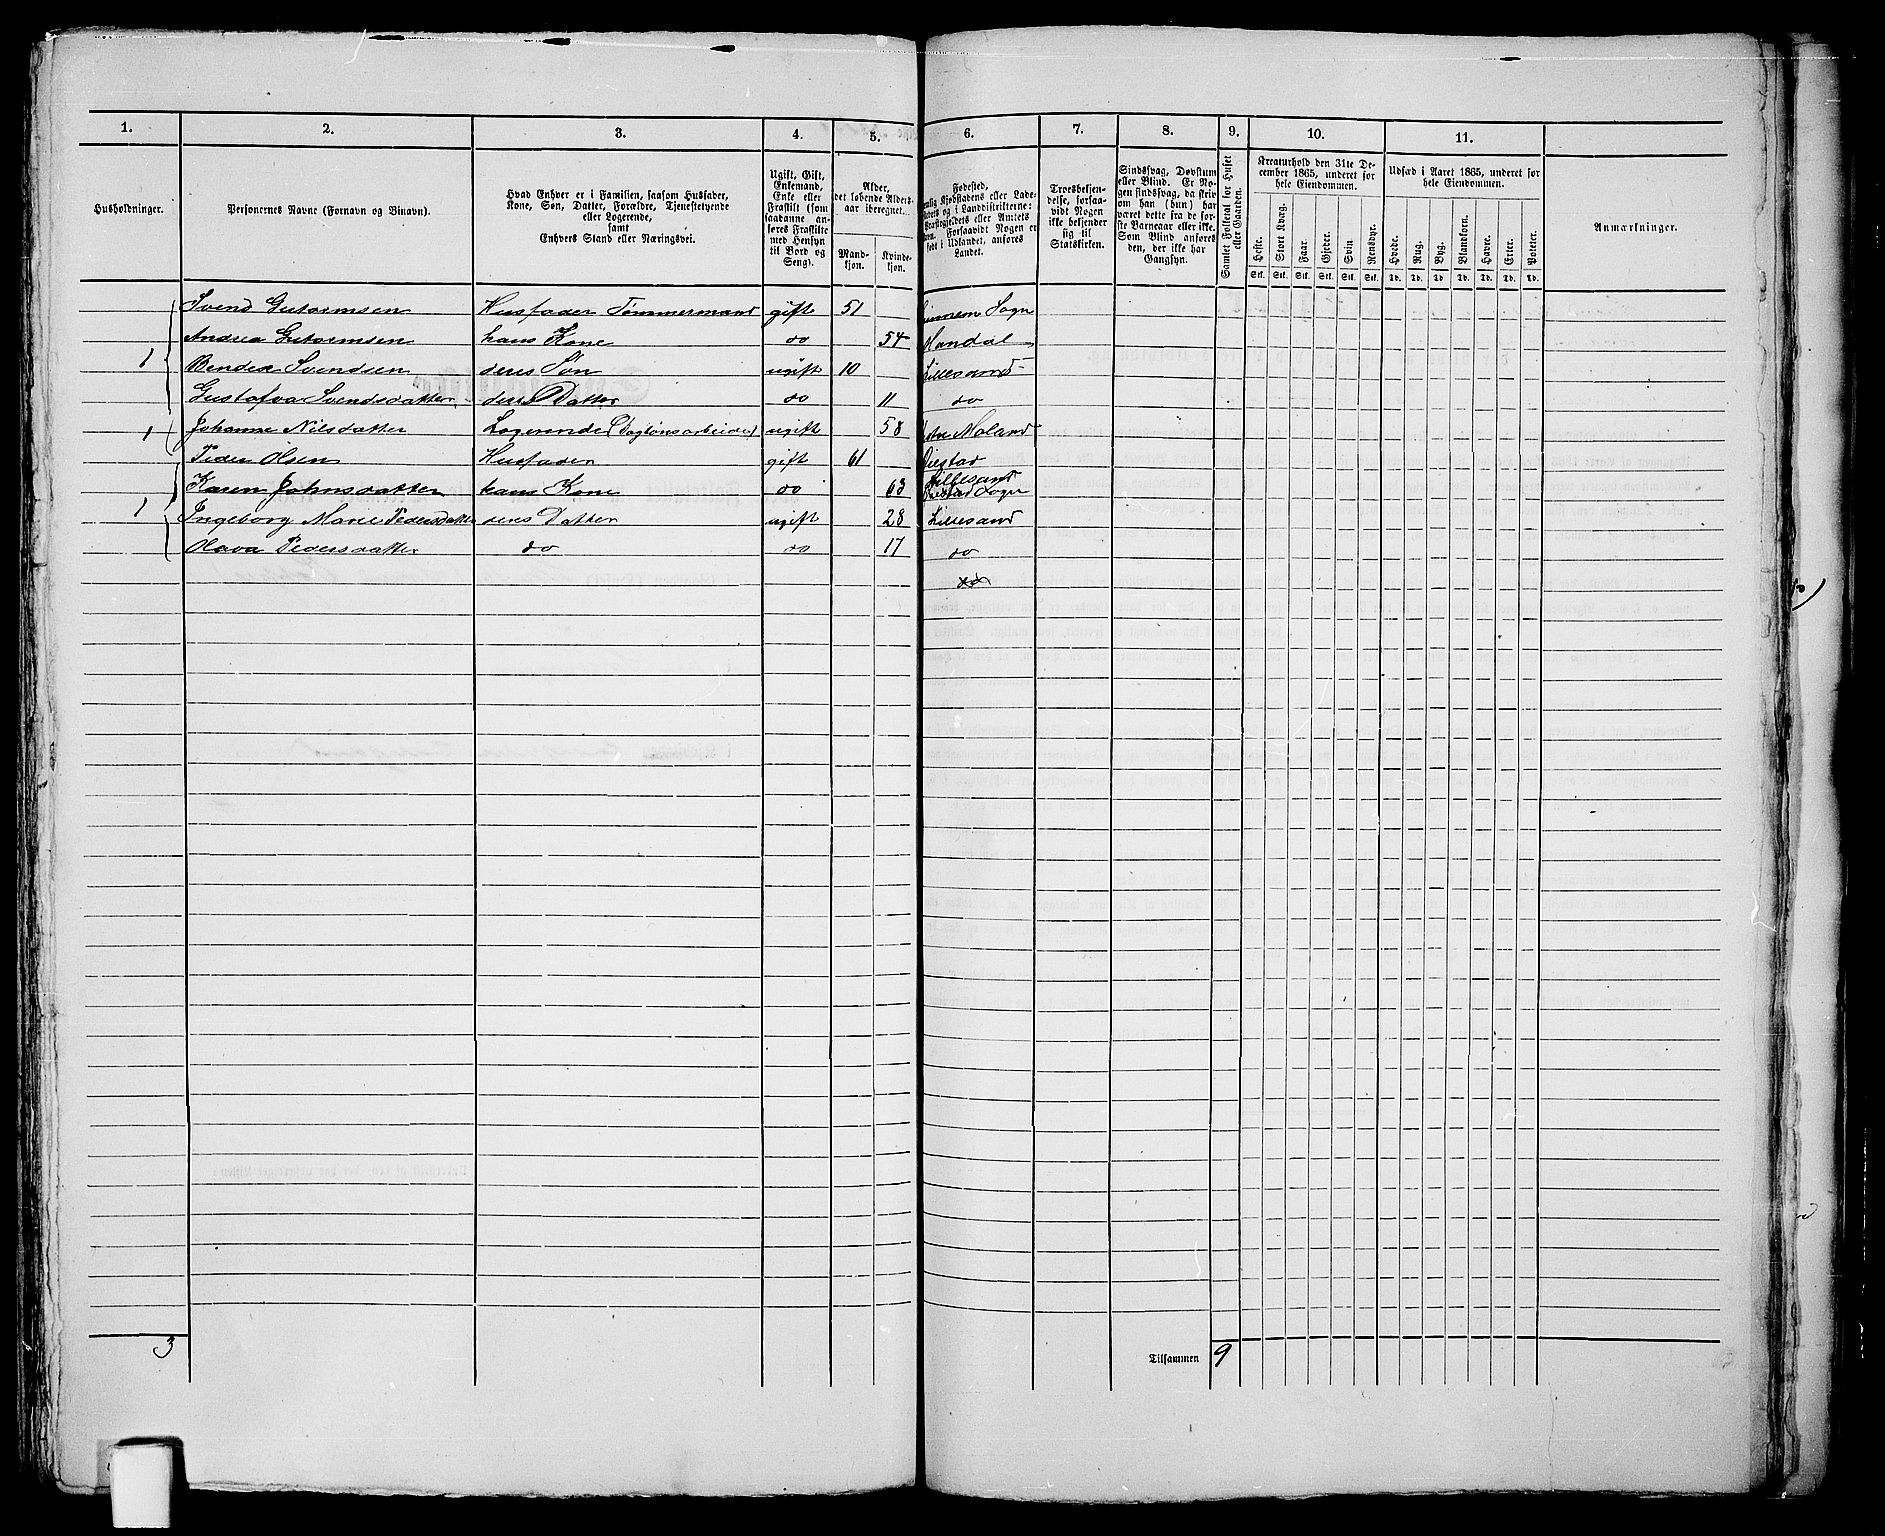 1. 2. 3. 4. 5. 6. 7. 8. 9. 10. 11.
Husholdninger.
Personernes Navne (Fornavn og Binavn).
Hvad Enhver er i Familien, saasom Husfader,
Kone, Søn, Datter, Forældre, Tjenestetyende
eller Logerende,
samt
Enhvers Stand eller Næringsvei.
Ugift, Gift,
Enkemand,
Enke eller
Fraskilt (som
saadanne an-
føres Fraskilte
med Hensyn
til Bord og
Seng).
Alder,
det løbende Alders-
aar iberegnet.
Mand-
kjøn.
Kvinde-
kjøn.
Fødested,
Kjøbstadens eller Lade-
og i Landdistrikterne:
eller Amtets
Forsaavidt Nogen er
født i Udlandet, anføres
Landet.
Troesbekjen-
delse, forsaa-
vidt Nogen
ikke bekjender
sig til
Statskirken.
Sindssvag, Døvstum
eller Blind. Er No-
gen sindssvag, da skriv
om han (hun) har
været dette fra de før-
ste Barneaar eller ikke.
Som Blind anføres
den, der ikke har
Gangsyn.
Samlet Folketal for Huset
eller Gaarden.
Kreaturhold den 31te De-
cember 1865, underet for
hele Eiendommen.
Heste. Stort Kvæg. Faar. Gjeder. Svin Rensdyr.
Stk. Stk. Stk. Stk. Stk. Stk.
Udsæd i Aaret 1865, underet for
hele Eiendommen.
Hvede. Rug. Byg. Blandkorn. Havre. Erter. Poteter.
Td. Td. Td. Td. Td. Td. Td.
Anmærkninger.
Svend Gutormsen Husfader Tømmermand gift 51 Sogn
Andrea Gutormsen hans Kone do 54 Mandal
1 Bendix Svendsen deres Søn ugift 10 Lillesand
Gustafva Svendsdatter deres Datter do 11 do
1 Johanne Nilsdatter Logerende (Daglønsarbeider) ugift 58 Moland
Peder Olsen Husfader gift 61
Lillesand
Karen Johnsdatter hans Kone do 63 Sogn
1 Ingeborg Marie Pedersdatter deres Datter ugift 28 Lillesand
Olava Pedersdatter do do 17 do
do
3 Tilsammen 9